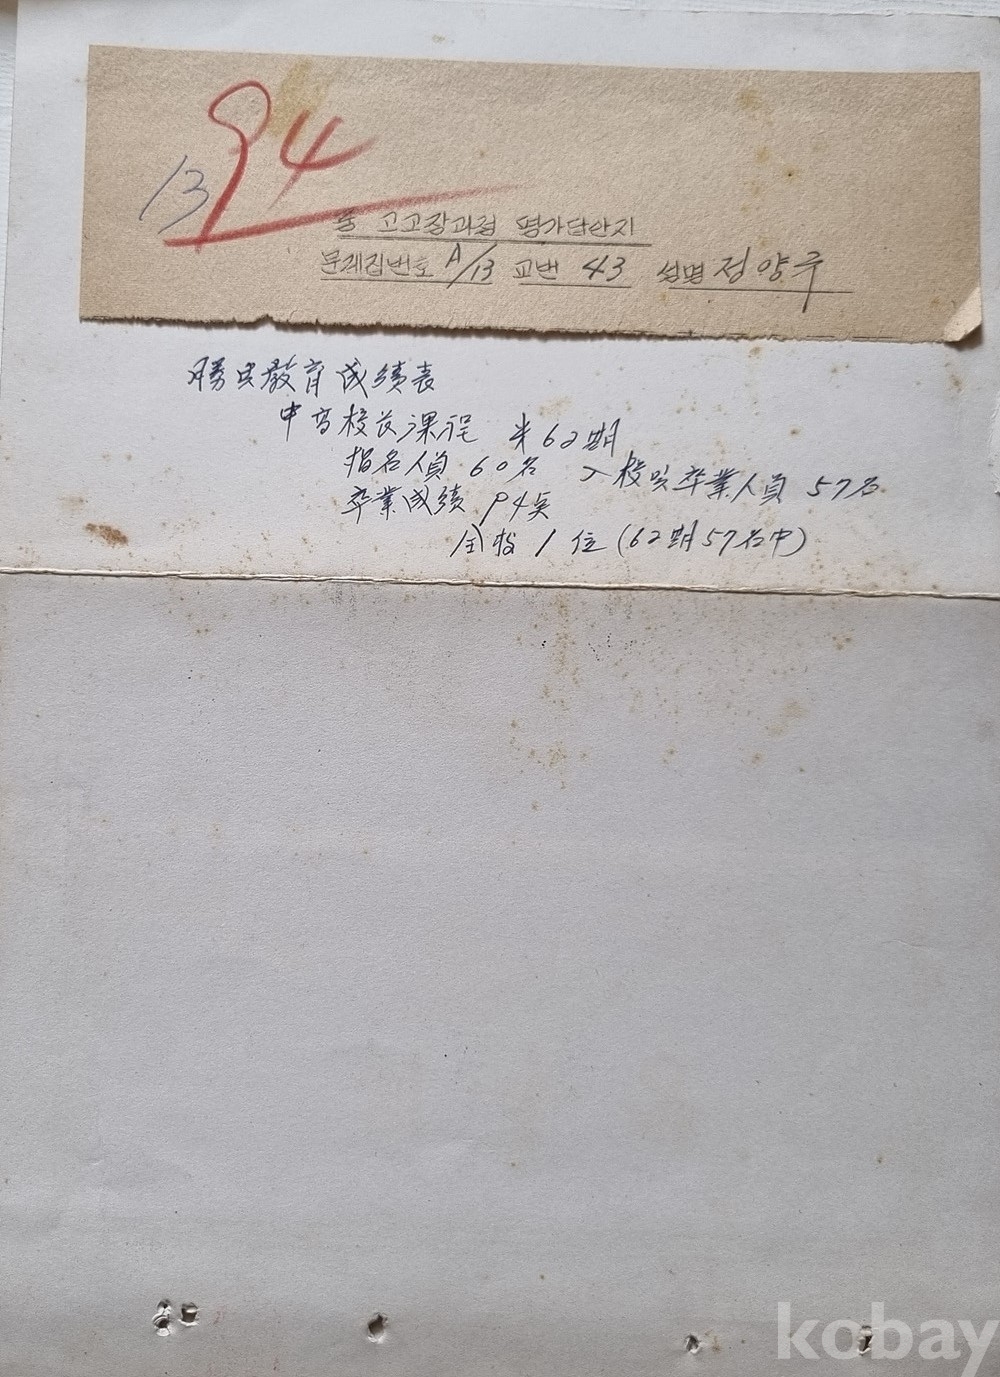 94
13
중 고교장과정 평가답안지
문제집번호 A/13 교번 43 성명 정양
勝共敎育成績表
中高校長課程 第62期
指名人員 60名 入校 卒業人員 57名
卒業成績 94点
全校 1位 (62期57名中)
kobay